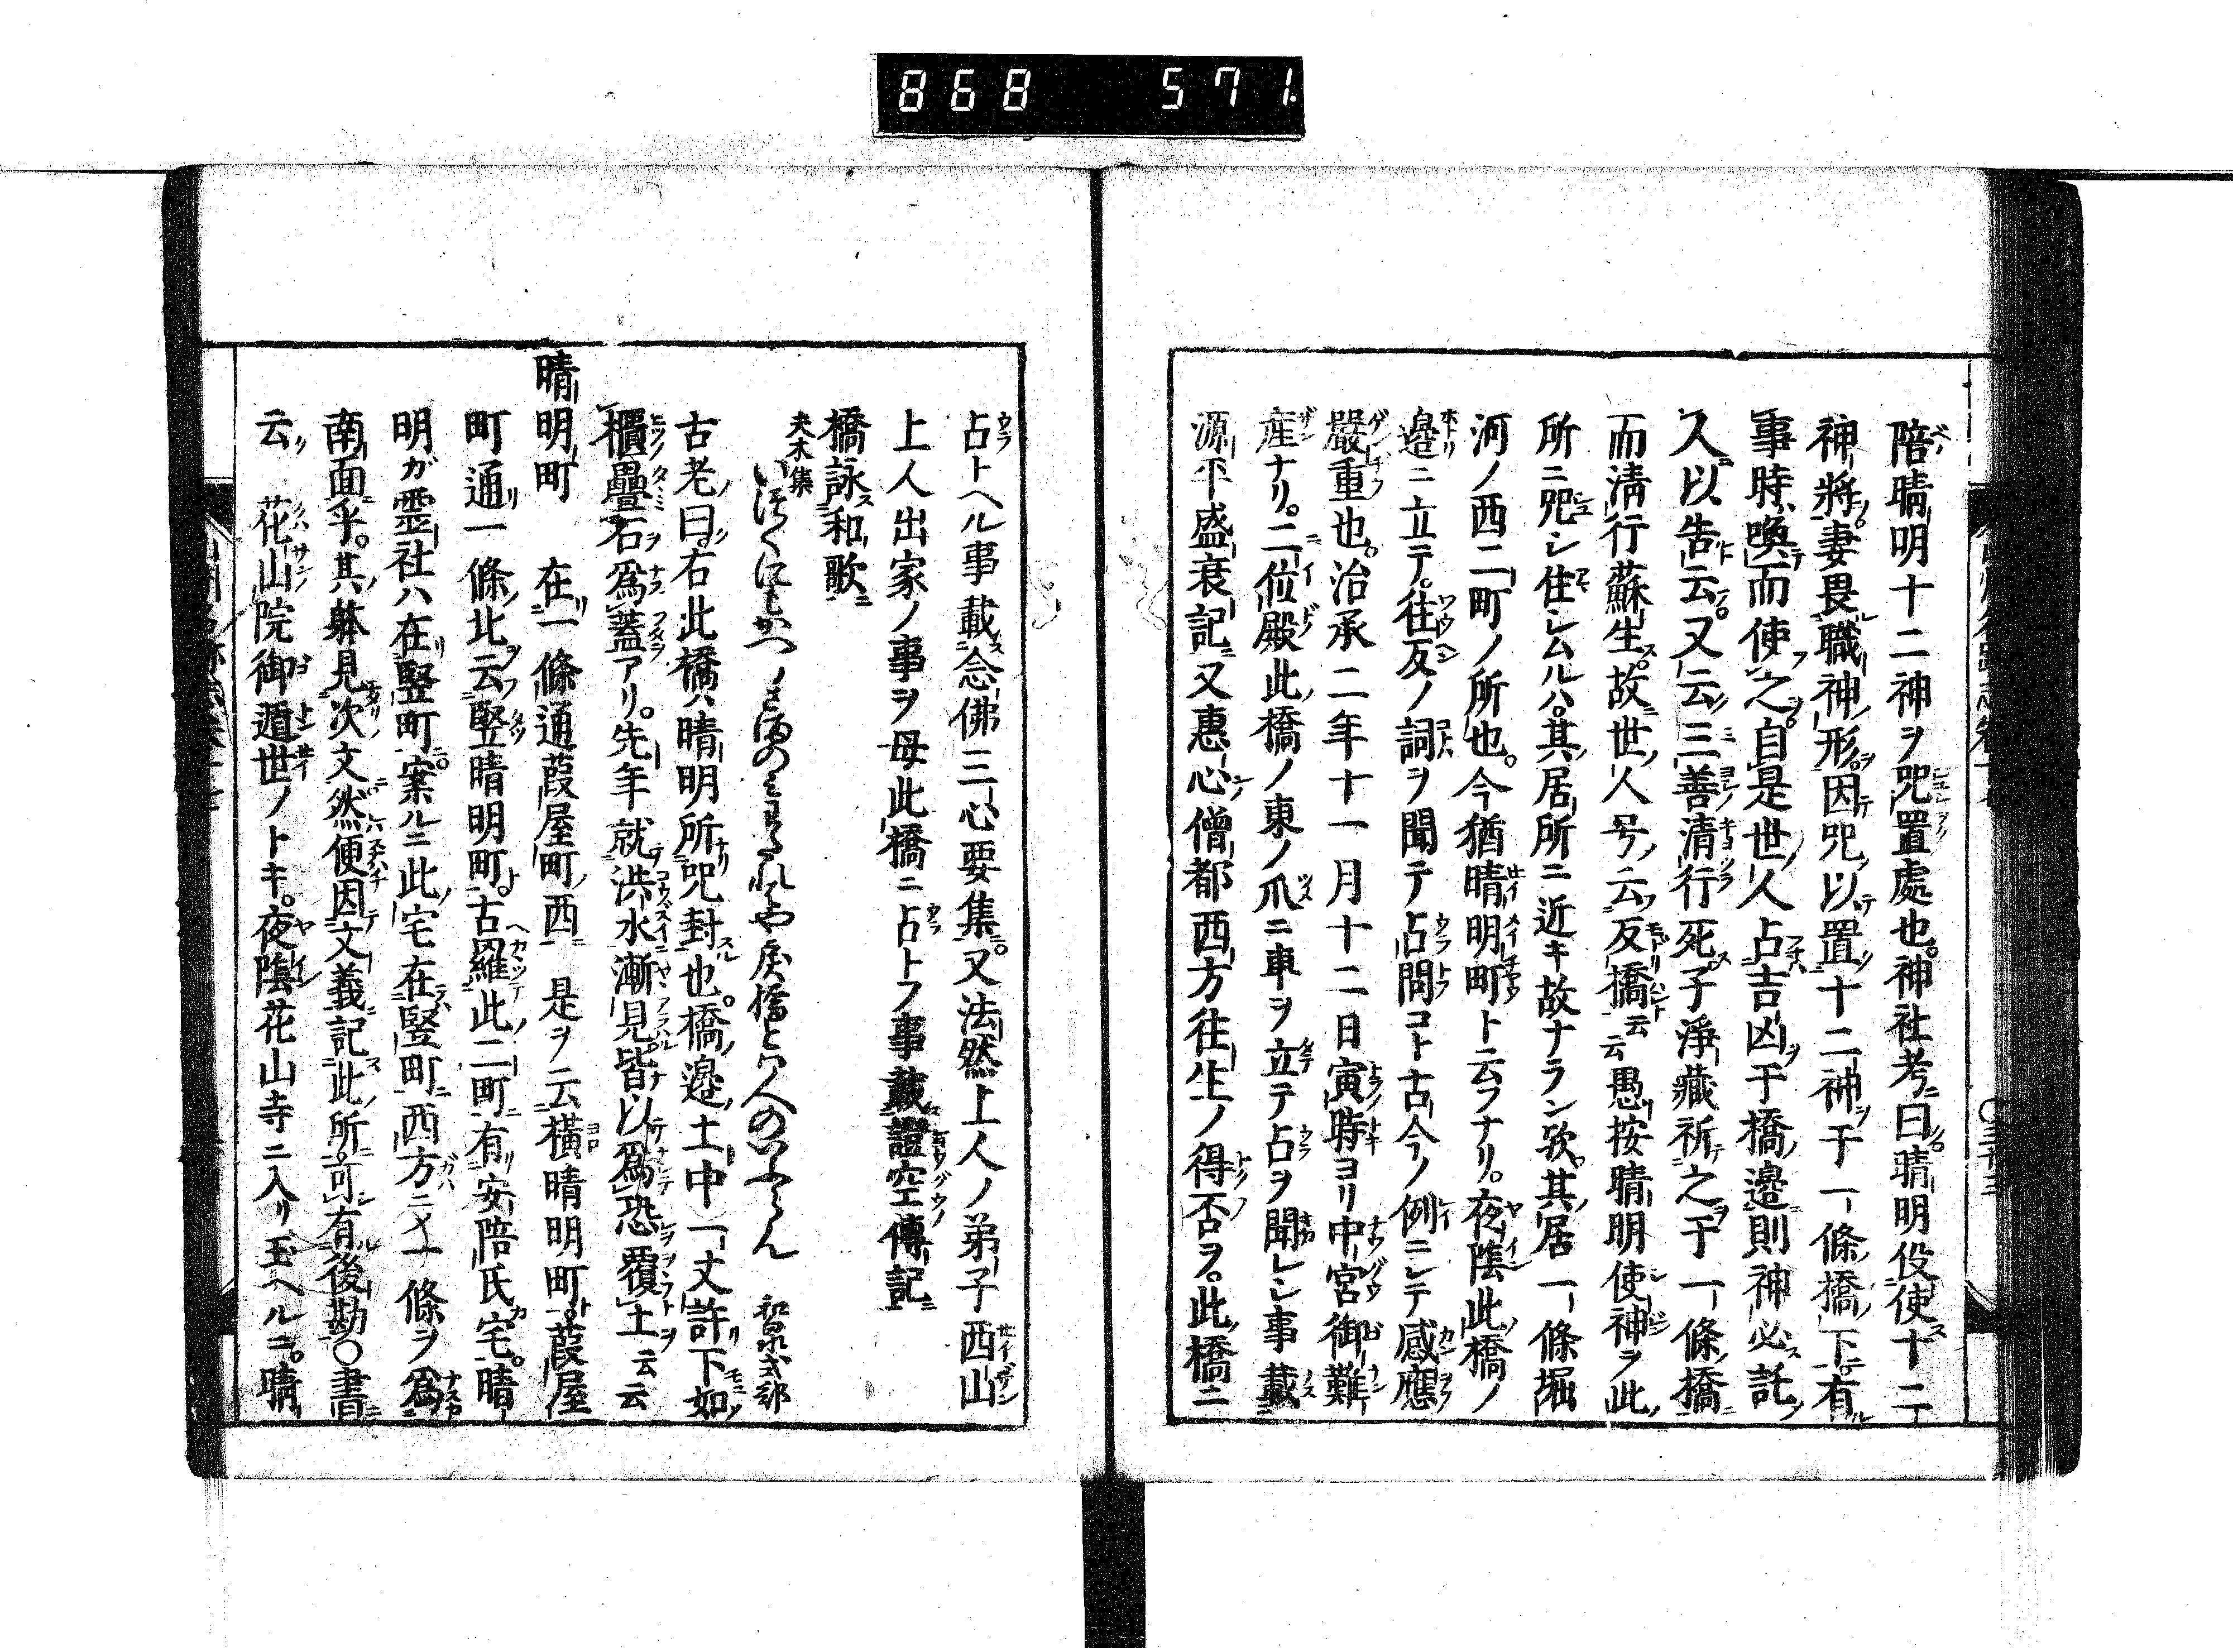 868 571
陪晴明十二神ヲ咒置處也。神社考ニ曰晴明役使十二
神將妻畏職神ノ形因咒以置十二神ヲ于一條橋下有
事時喚而使之自是世人占吉凶于橋邊則神必託
人以告云。又云三善清行死子淨藏祈之于一條橋
而清行蘇生故世人号云反橋云云愚按晴明使神ヲ此
所ニ咒シ住シムルハ其居所ニ近キ故ナラン欤其居一條堀
河ノ西二町ノ所也。今猶晴明町ト云フナリ。夜陰此橋ノ
邉ニ立テ。往反ノ詞ヲ聞テ占問コト古今ノ例ニシテ感應
嚴重也。治承二年十一月十二日寅時ヨリ中宮御難
産ナリ。二位殿此橋ノ東ノ爪ニ車ヲ立テ占ヲ聞レシ事載
源平盛衰記ニ又惠心僧都西方往生ノ得否ヲ。此橋ニ
占トヘル事載念佛三心要集。又法然上人ノ弟子西山
上人出家ノ事ヲ母此橋ニ占トフ事載證空傳記ニ
橋詠和歌
夫木集
戻橋とハ人のいふらん 和泉式部
古老曰右此橋ハ晴明所咒封也。橋邉土中一丈許下如
櫃疊石為蓋アリ。先年就洪水漸見皆以為恐覆土云云
晴明町 在一條通葭屋町西 是ヲ云橫晴明町ト葭屋
町通一條北云竪晴明町。古羅此二町有安陪氏宅。晴
明ガ霊社ハ在竪町案ルニ此宅在竪町西方ニ〆一條ヲ為
南面乎。其躰見次文然便因文義記此所可有後勘〇書
云 花山院御遁世ノトキ。夜陰花山寺ニ入リ玉ヘルニ。晴